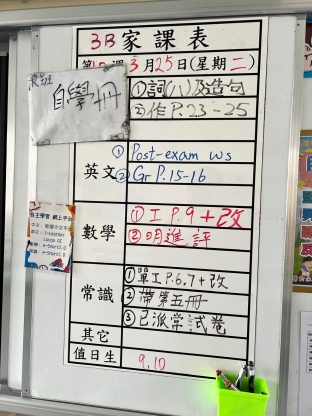 3B家課表
3月25日(星期二)
良班
自學冊
①詞(八)及造句
②作P.23-25
英文
①Post-exam ws
②Gr P.15-16
數學
①工P.9+改
②明進評
常識
①單工P.6,7+改
②帶第五冊
③已派常試卷
其它
值日生
9,10
自主學習 網上平台